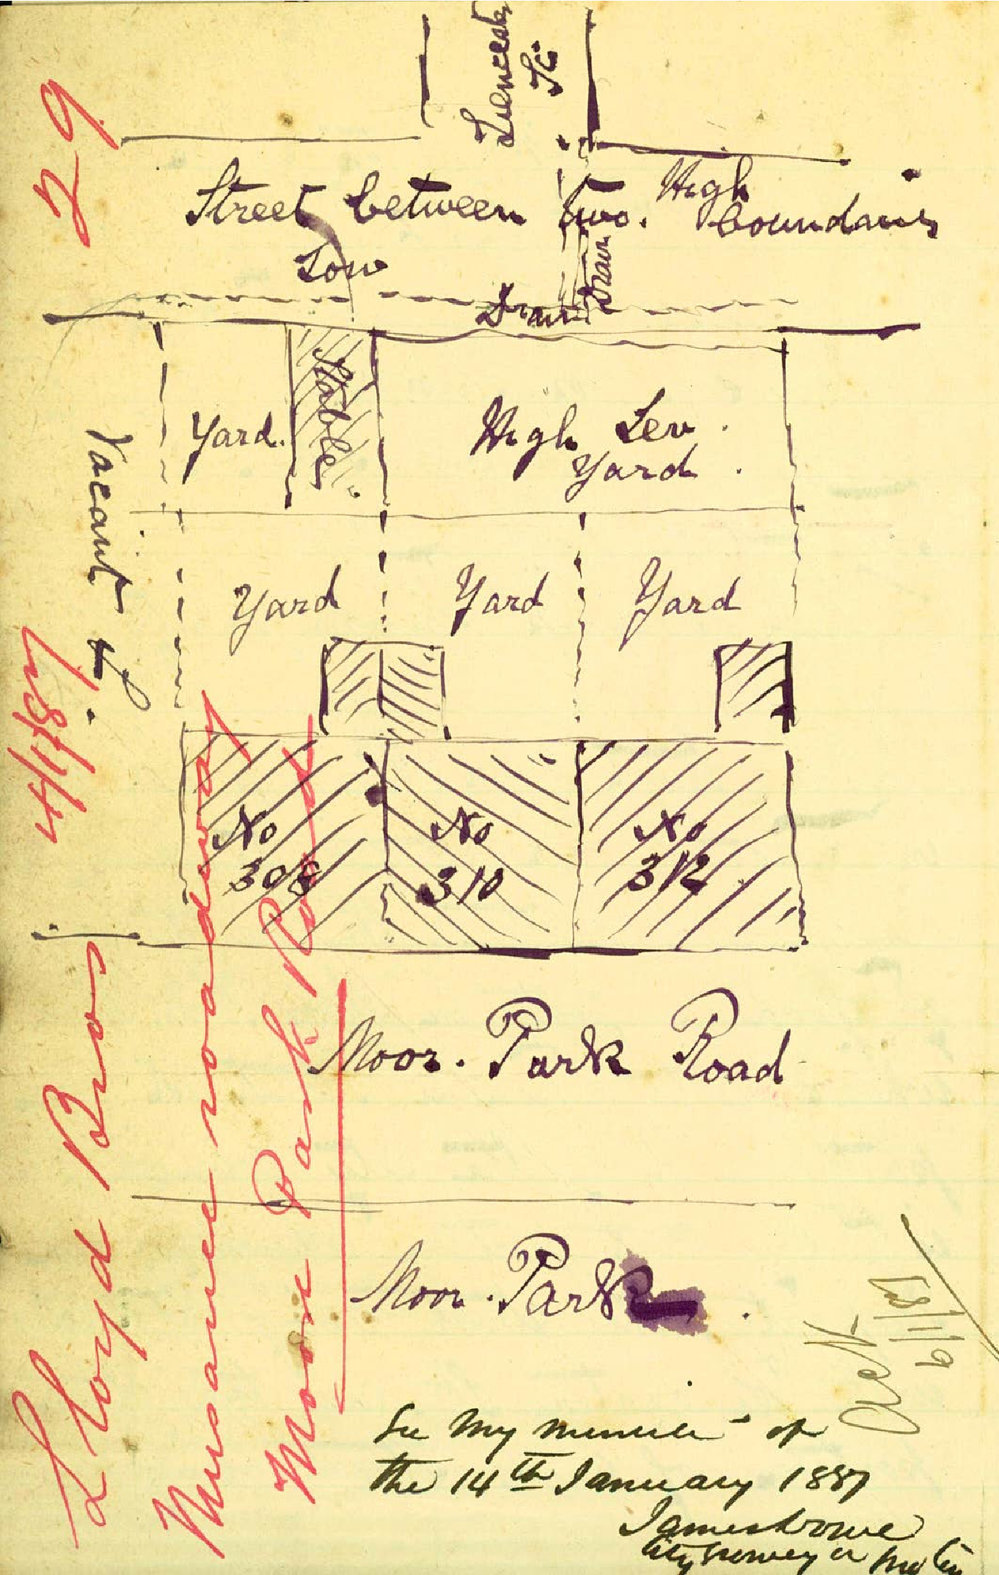 29
St
Street between two High
boundaries
Low
Drain
Drain
Yard
Stables
High Lev
Yard
Vacant L.
Yard
Yard
Yard
No
308
No
310
No
312
Moor. Park Road
Moor. Park
Lloyd Bros 4/1/87
Nuisance roadway
Moore Park Road
Ack
6/1/87
See My minute of
the 14th January 1887
City Surveyor